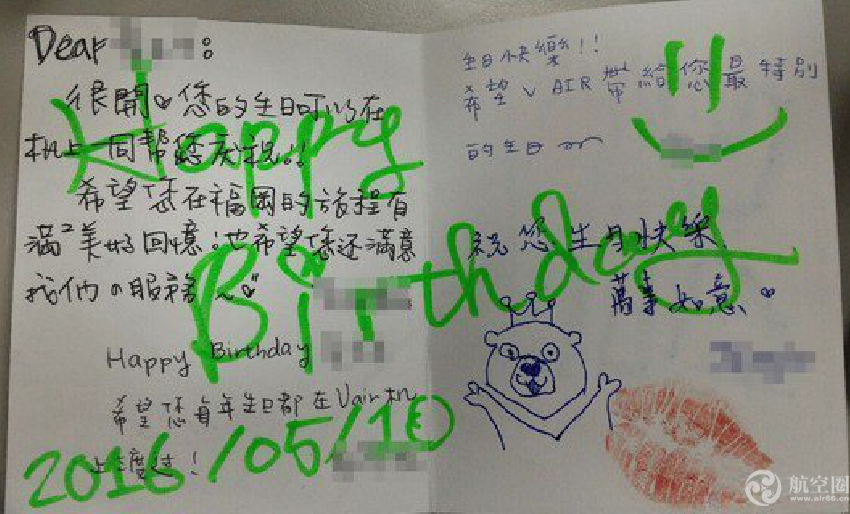 Dear :
很開♡您的生日可以在
机上一同幫您慶祝!!
希望您在福岡的旅程有
滿²美好回憶;也希望您还滿意
我們の服務~
Happy Birthday
希望您每年生日都在Vair机
上度过!
生日快樂!!
希望 V AIR 帶給您最特別
的生日
祝您 生日快樂
萬事如意。
Happy
Birthday
2016/05/10
航空圈
www.air66.cn